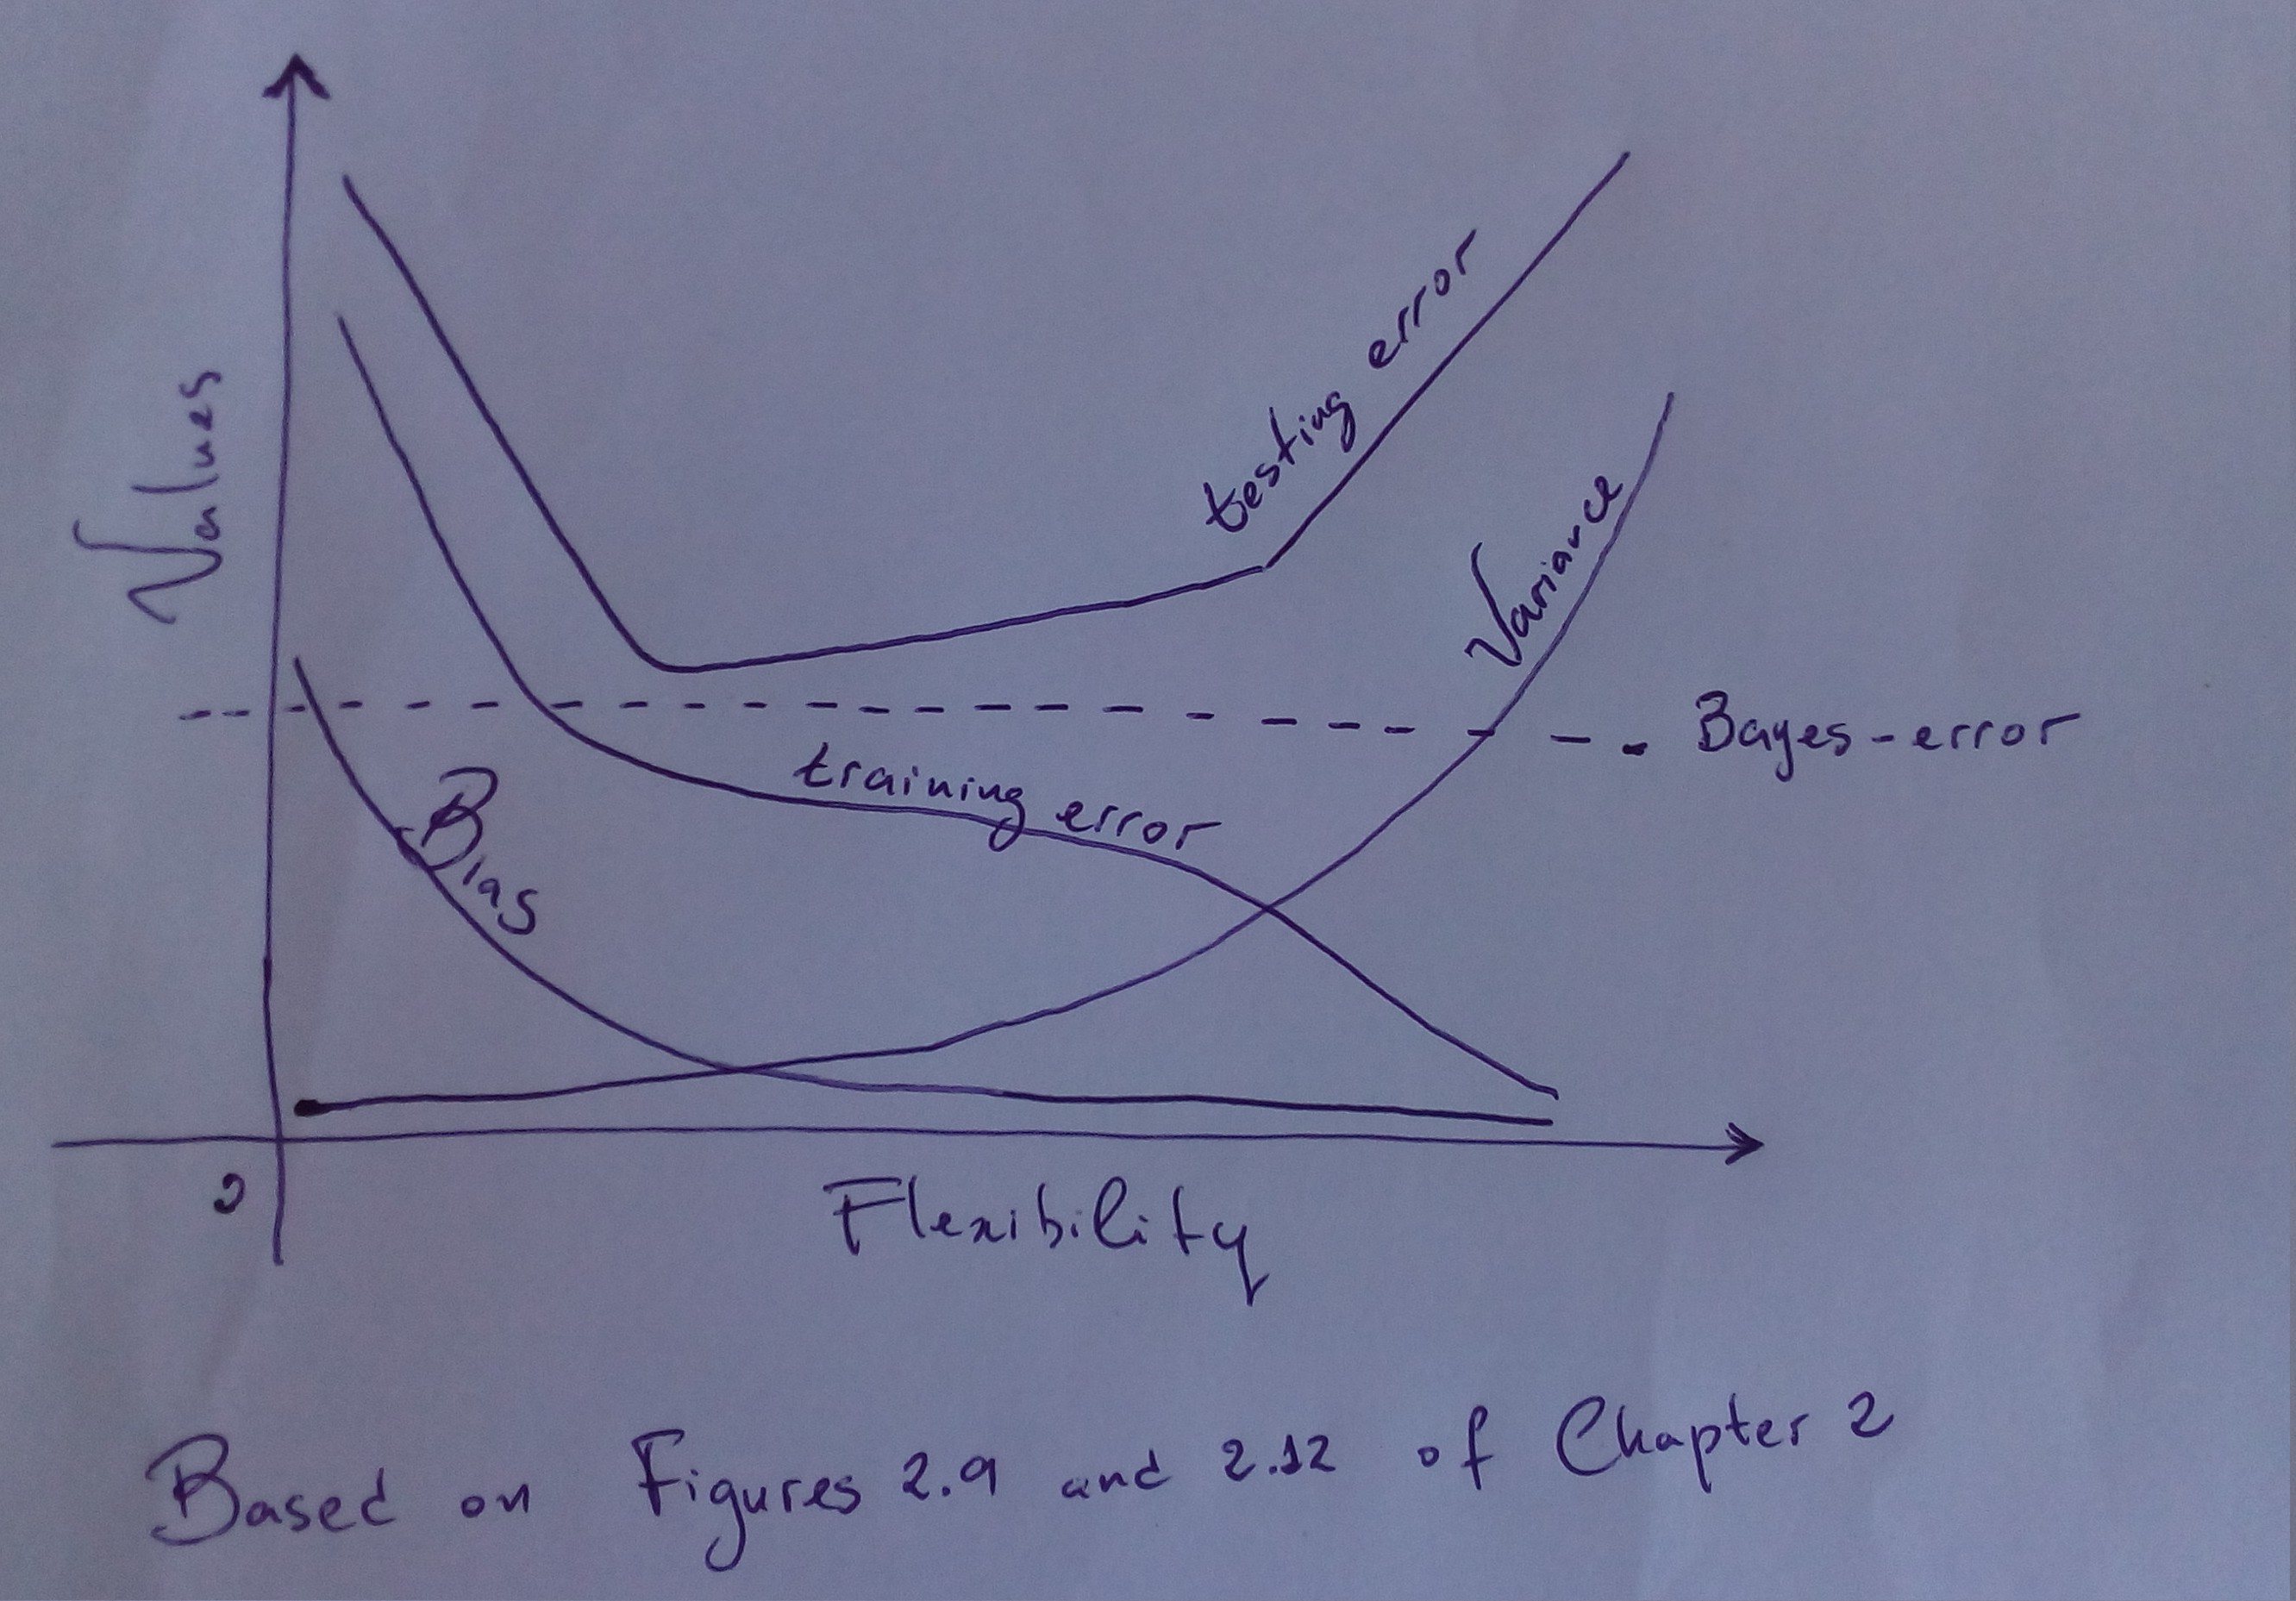 Values
testing error
Variance
Bayes-error
training error
Bias
0
Flexibility
Based on Figures 2.9 and 2.12 of Chapter 2